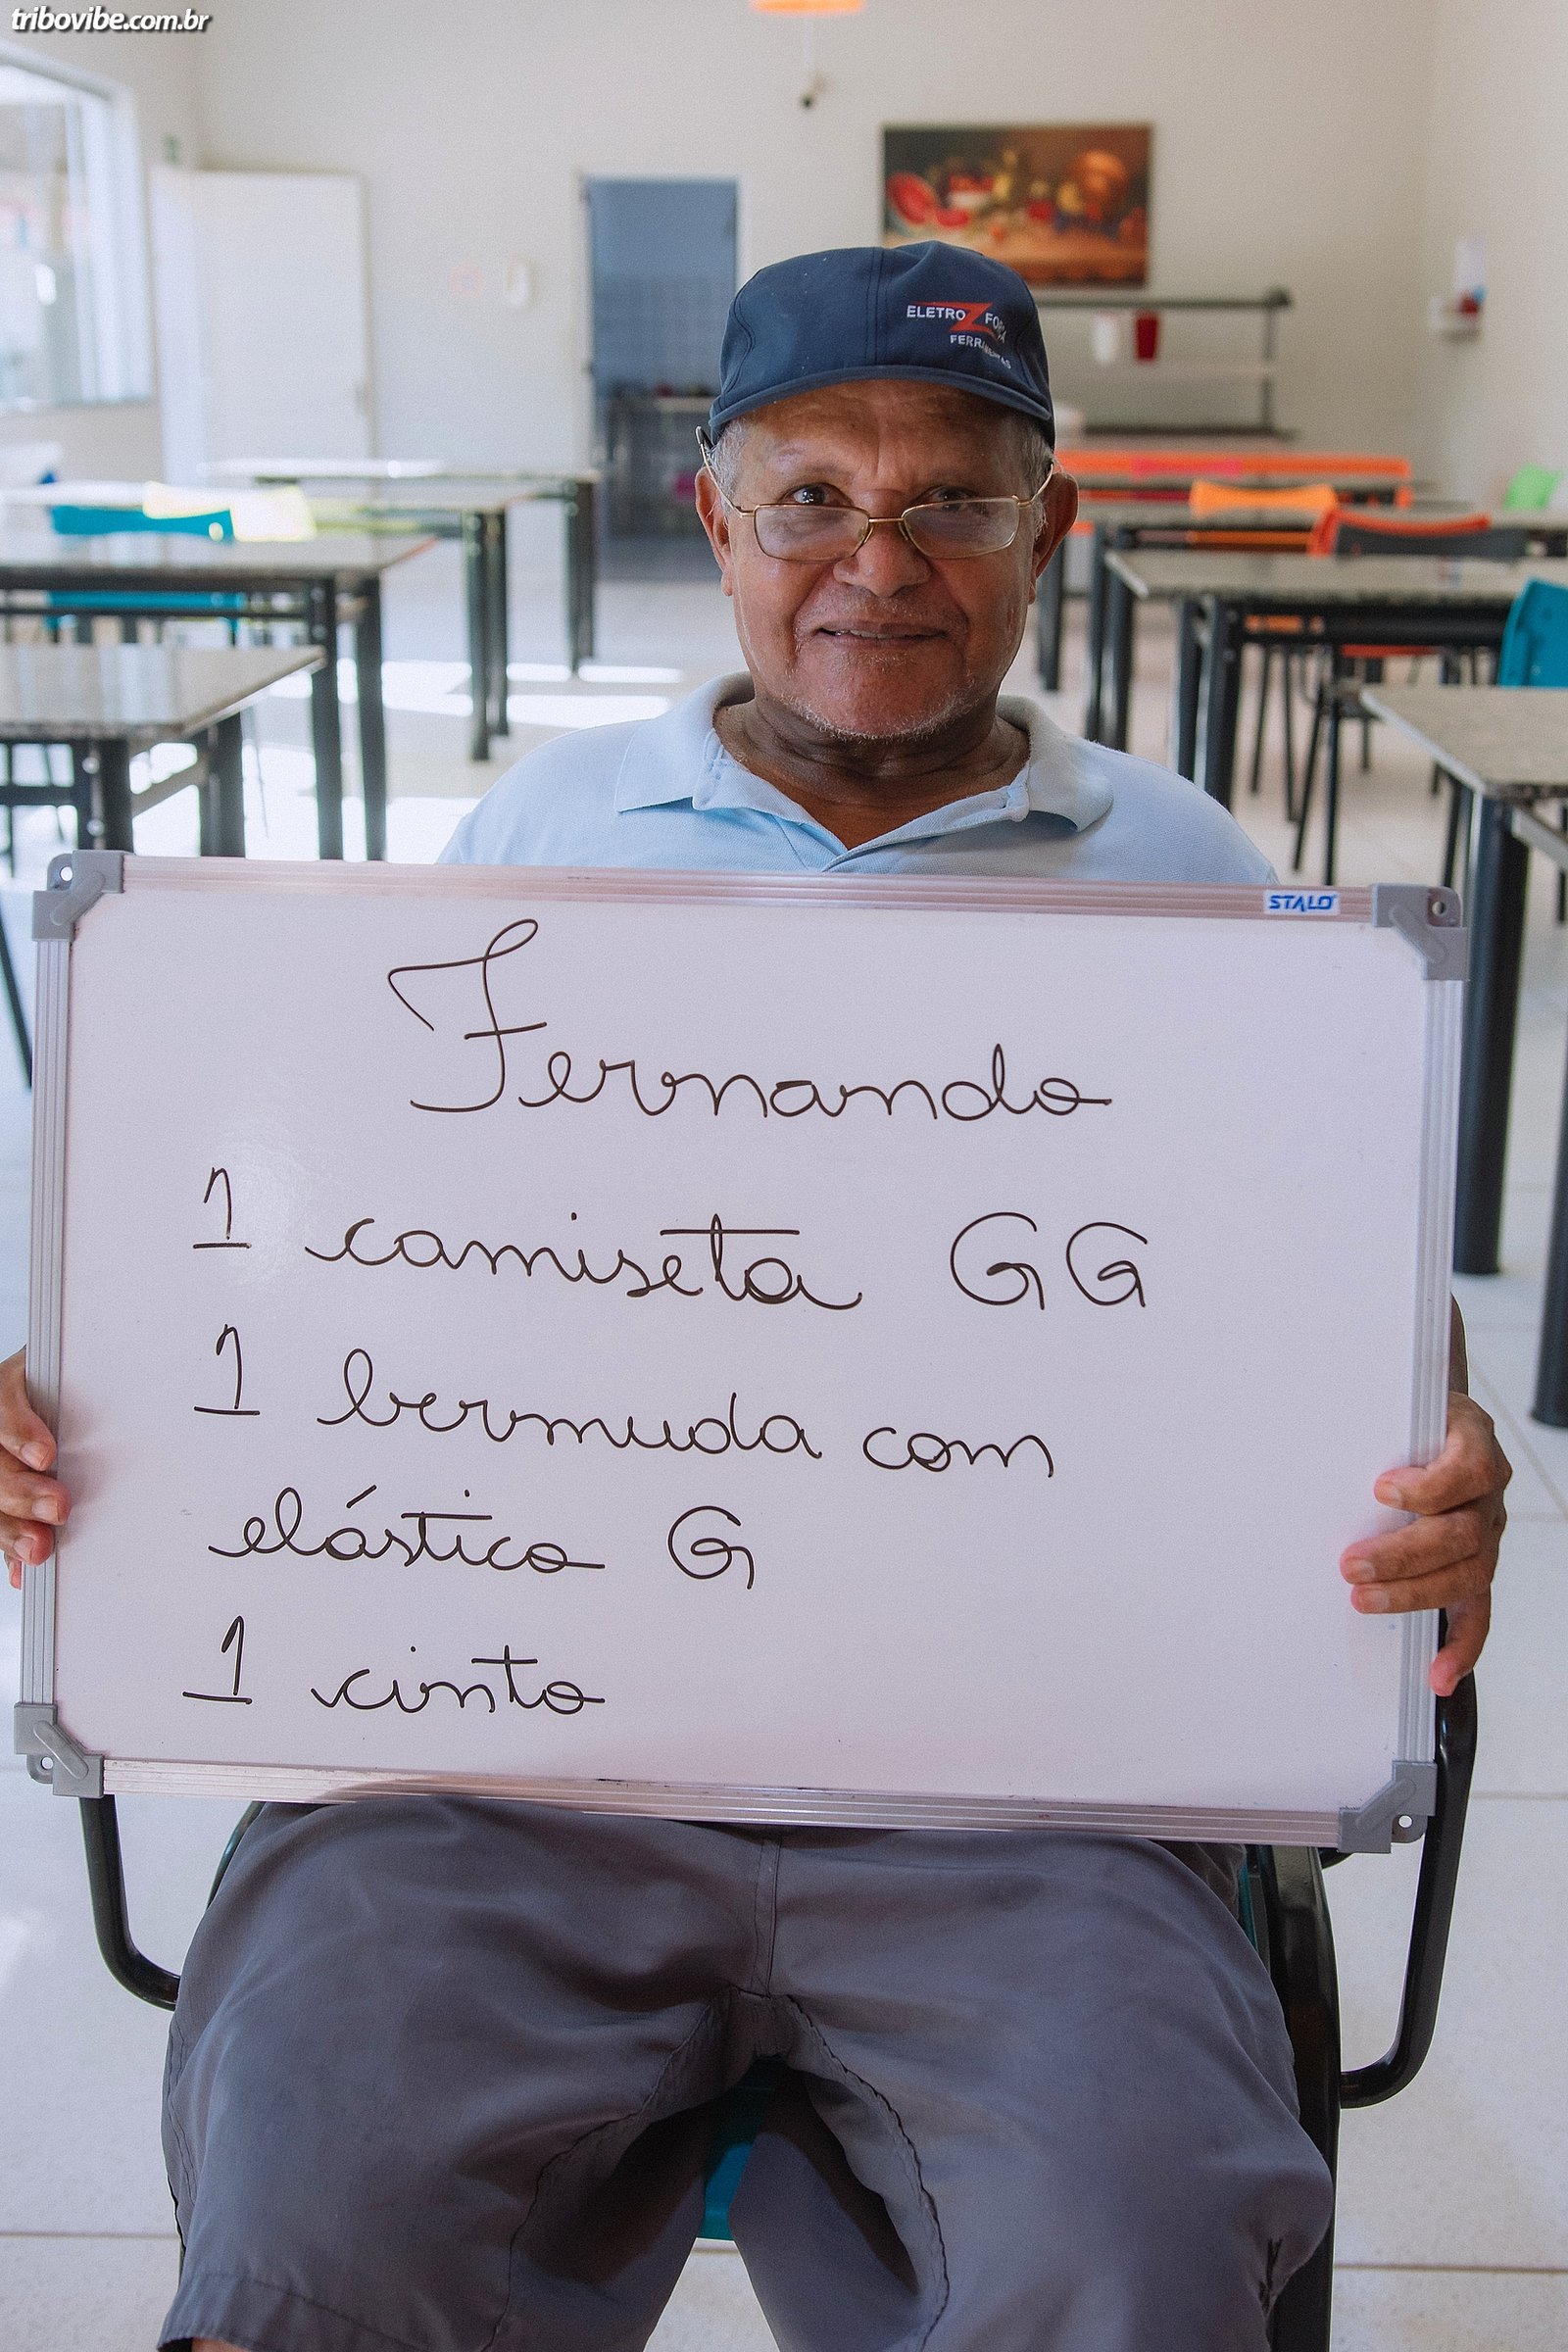 tribovibe.com.br
ELETRO Z FORA
FERRAMENTAS
STALO
Fernando
1 camiseta GG
1 bermuda com
elástico G
1 cinto